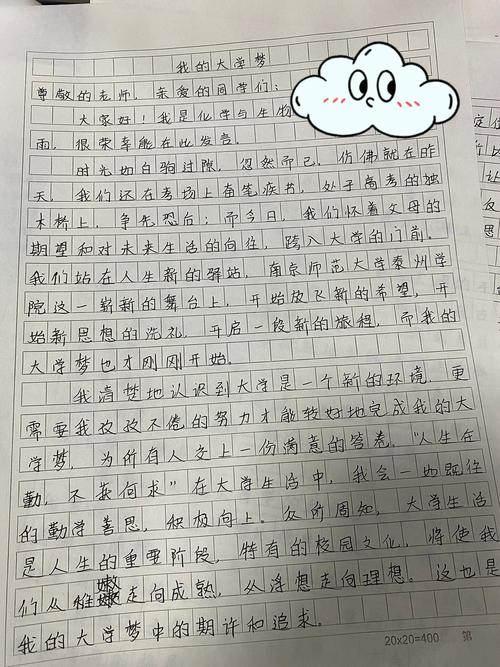 我的大学梦
尊敬的老师，亲爱的同学们：
大家好！我是化学与生物
雨，很荣幸能在此发言。
时光如白驹过隙，忽然而已。仿佛就在昨
天，我们还在考场上奋笔疾书，处于高考的独
木桥上，争先恐后；而今日，我们怀着父母的
期望和对未来生活的向往，跨入大学的门前。
我们站在人生新的驿站，南京师范大学泰州学
院这一崭新的舞台上，开始放飞新的希望，开
始新思想的洗礼，开启一段新的旅程，而我的
大学梦也才刚刚开始。
我清楚地认识到大学是一个新的环境，更
需要我孜孜不倦的努力才能较好地完成我的大
学梦，为所有人交上一份满意的答卷。“人生在
勤，不获何求”在大学生活中，我会一如既往
的勤学善思，积极向上。众所周知，大学生活
是人生的重要阶段，特有的校园文化，将使我
们从稚嫩走向成熟，从浮想走向理想。这也是
我的大学梦中的期许和追求。
20×20=400 第